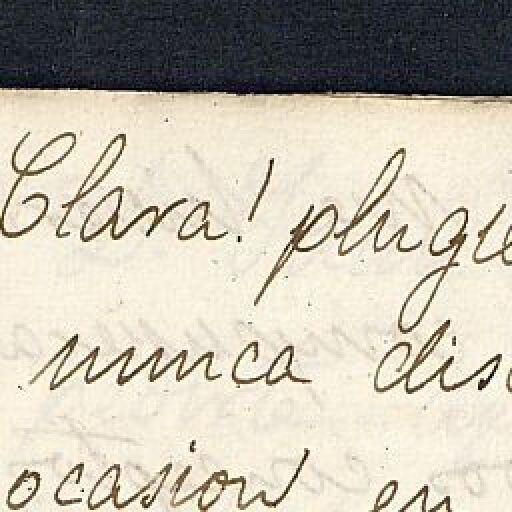 Clara! plugie
nunca dis
ocasion en